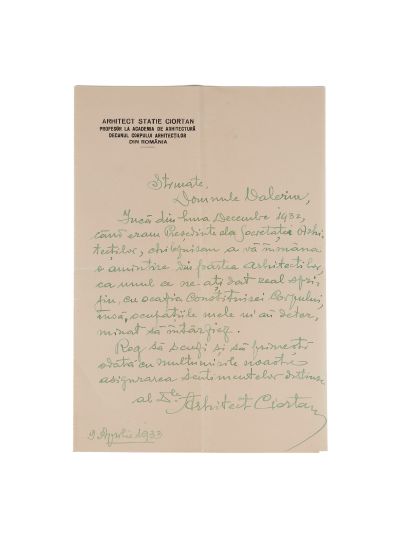 ARHITECT STATIE CIORTAN
PROFESOR LA ACADEMIA DE ARHITECTURĂ
DECANUL CORPULUI ARHITECȚILOR
DIN ROMÂNIA
Stimate,
Domnule Valeriu,
Încă din luna Decembre 1932,
când eram Președinte la Societăței Arhi-
tecților, chibzuisem a vă înmâna
o amintire din partea arhitecților,
ca unul ce ne-ați dat real spri-
jin, cu ocazia Constituirei Corpului
însă, ocupațiile mele m'au deter-
minat să întârziez.
Rog să scuzați și să primiți
odată cu mulțumirile noastre
asigurarea sentimentelor distinse
al Dv.
Arhitect Ciortan
9 Aprilie 1933